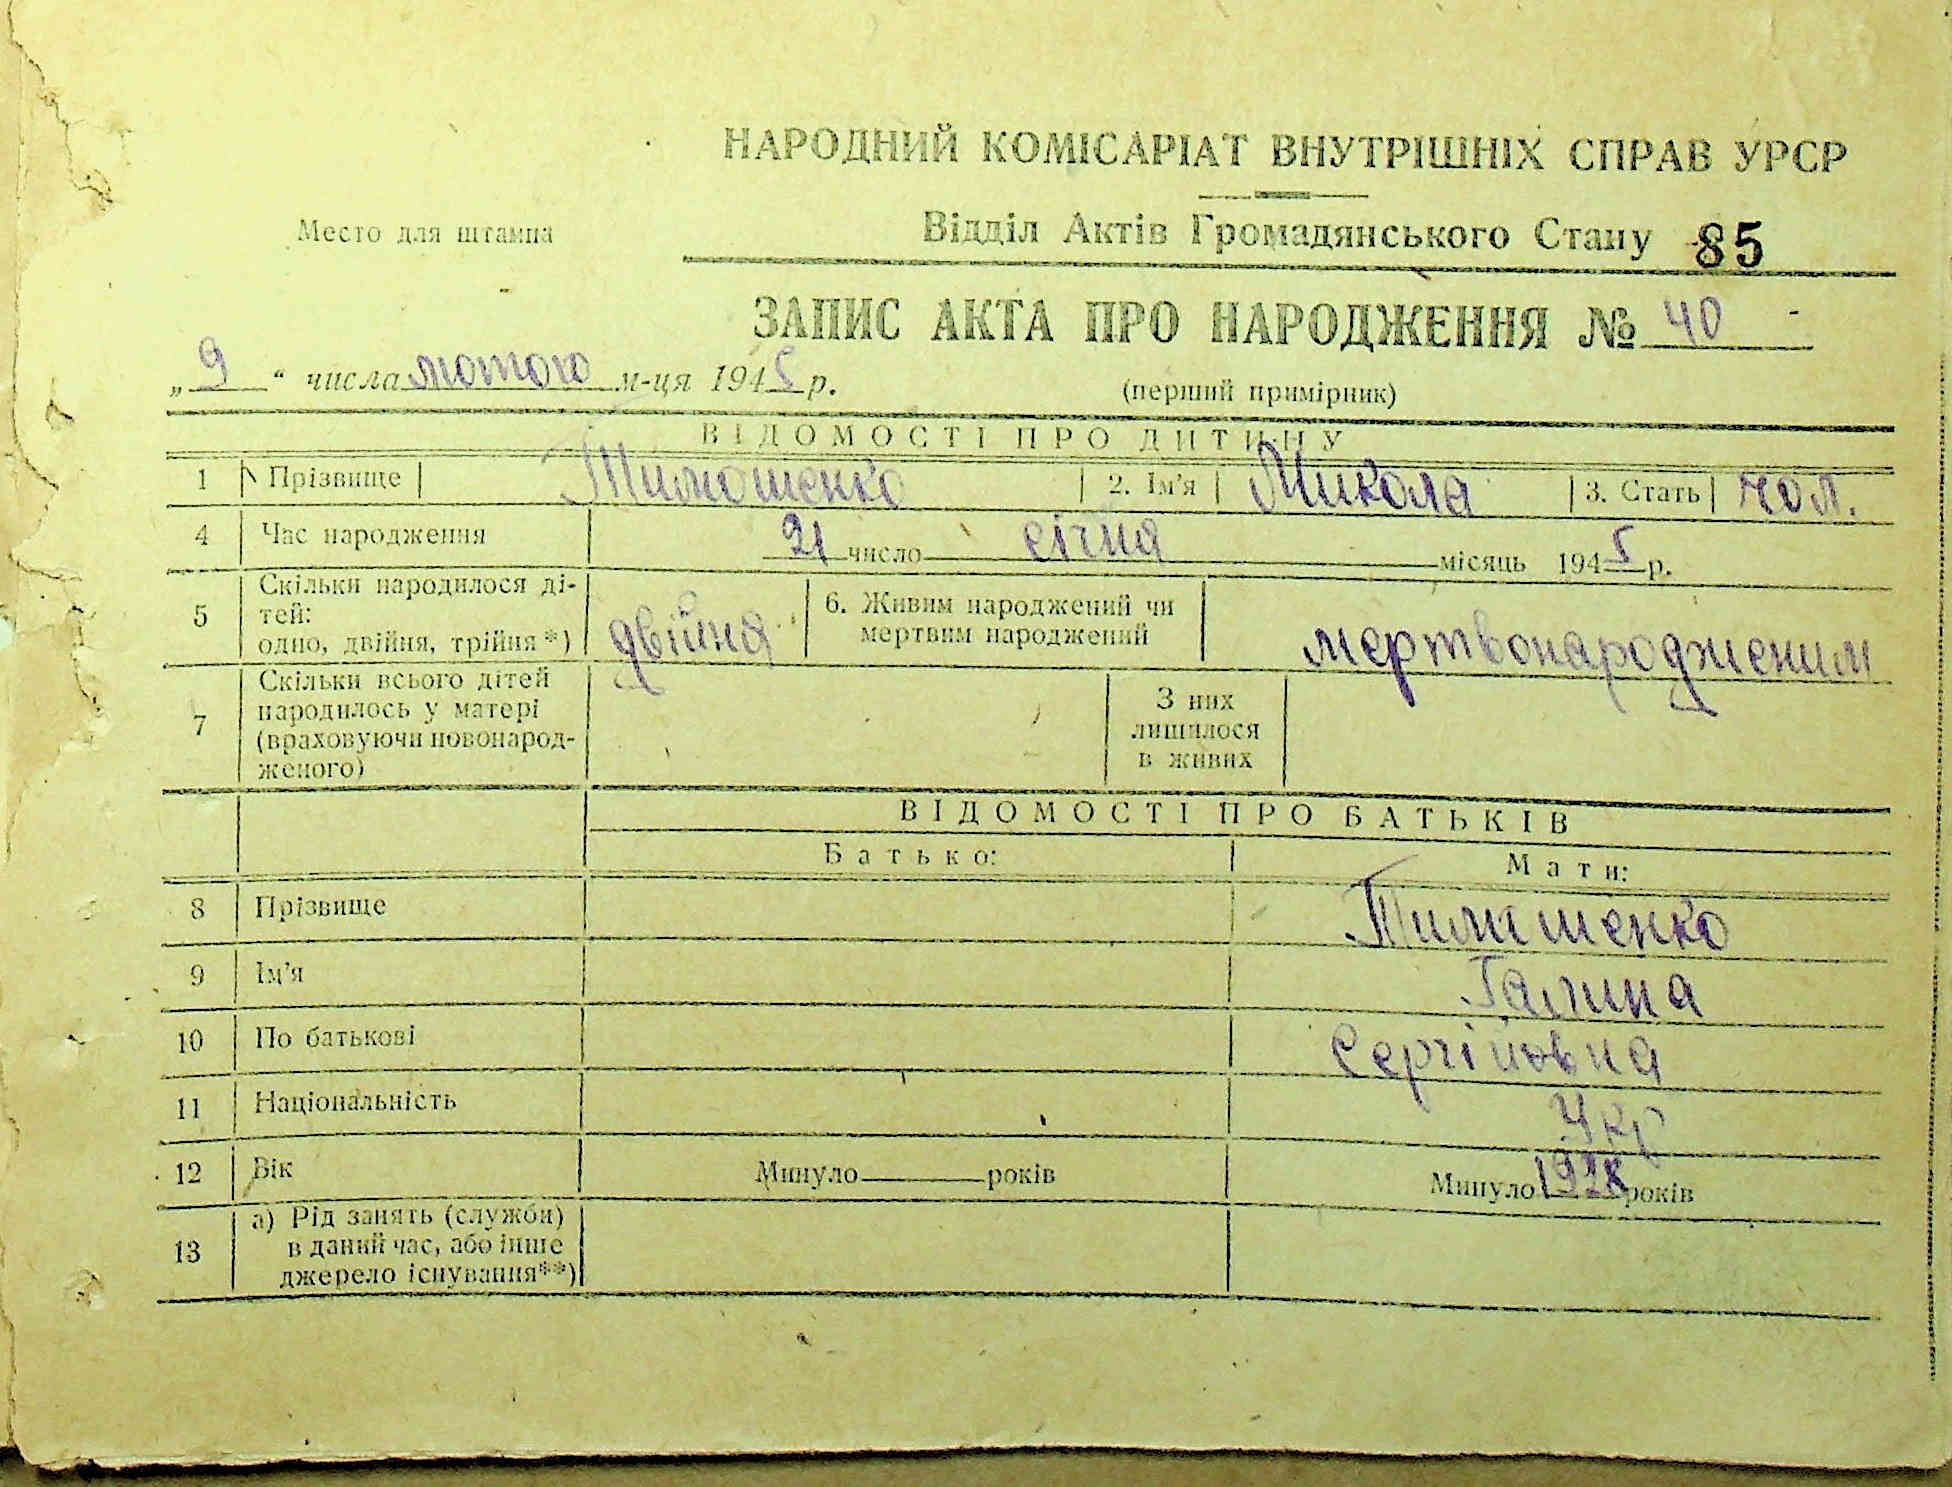 НАРОДНИЙ КОМІСАРІАТ ВНУТРІШНІХ СПРАВ УРСР
Место для штампа
Відділ Актів Громадянського Стану 85
ЗАПИС АКТА ПРО НАРОДЖЕННЯ № 40
„9“ числа лютого м-ця 1945 р.
(перший примірник)
ВІДОМОСТІ ПРО ДИТИНУ
1 Прізвище Тимошенко 2. Ім'я Микола 3. Стать чол.
4 Час народження 21 число січня місяць 1945 р.
5 Скільки народилося ді-
тей:
одно, двійня, трійня*) двійня 6. Живим народжений чи
мертвим народжений мертвонародженим
7 Скільки всього дітей
народилось у матері
(враховуючи новонарод-
женого)
З них
лишилося
в живих
ВІДОМОСТІ ПРО БАТЬКІВ
Батько: Мати:
8 Прізвище Тимошенко
9 Ім'я Галина
10 По батькові Сергійовна
11 Національність Укр
12 Вік Минуло років Минуло років
13 а) Рід занять (служби)
в даний час, або інше
джерело існування**)